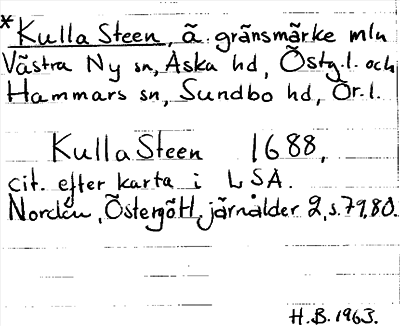 *Kulla Steen, ä. gränsmärke mln
Västra Ny sn, Aska hd, Östg.l. och
Hammars sn, Sundbo hd, Ör.l.
Kulla Steen 1688,
cit. efter karta i LSA.
Nordén, Östergötl. järnålder 2, s. 79, 80.
H.B. 1963.